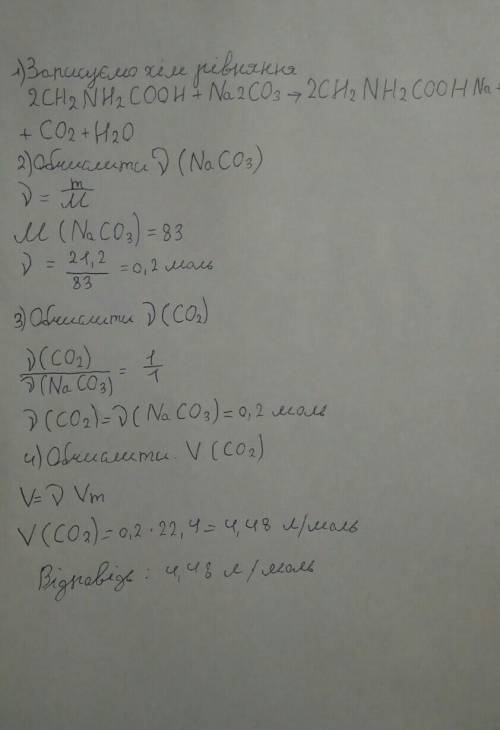 1) Записуємо хім рівняння
2CH2NH2COOH + Na2CO3 → 2CH2NH2COOHNa +
+ CO2 + H2O
2) Обчислити ν (NaCO3)
ν = m/M
M (NaCO3) = 83
ν = 21,2/83 = 0,2 моль
3) Обчислити ν (CO2)
ν(CO2)/ν(NaCO3) = 1/1
ν(CO2) = ν(NaCO3) = 0,2 моль
4) Обчислити V (CO2)
V = ν Vm
V(CO2) = 0,2 · 22,4 = 4,48 л/моль
Відповідь : 4,48 л/моль